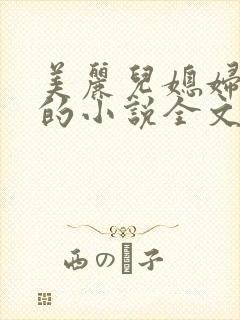 美麗兒媳婦
的小說全文
西の子